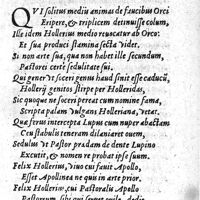 QVI solitus mediu animas de faucibus Orci
Eripere, & triplicem detinuisse colum,
Ille idem Hollerius medio reuocatur ab Orco:
Et sua produci stamina secta videt.
Si non arte sua, quâ non habet ille secundum,
Pastoris certè sedulitate sui,
Qui gener vt soceri genus haud sinit esse caducū,
Hollerij genitos stirpe per Holleridas,
Sic quoque ne soceri pereat cum nomine fama,
Scripta palàm vulgans Holleriana, vetat.
Qua ferus intercepta Lupus cum nuper abactam
Ceu stabulis teneram dilaniaret ouem,
Sedulus vt Pastor prædam de dente Lupino
Excutit, & nomen re probat ipse suum.
Felix Hollerius, viuo cui fauit Apollo,
Esset Apollinea ne quis in arte prior,
Felix Hollerius, cui Pastoralis Apollo